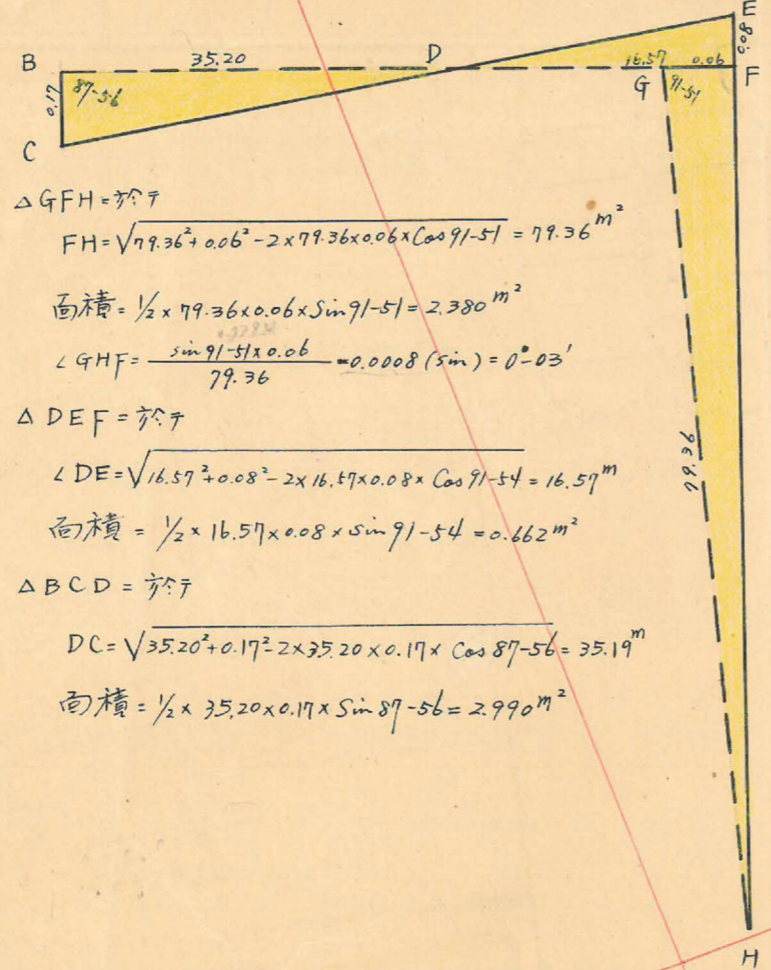 E
B 35.20 D 16.57 0.06 F
0.08
0.17 87-56 G 91-51
C
△GFH=於テ
FH=√79.36²+0.06²-2×79.36×0.06×Cos91-51 = 79.36m²
面積=1/2×79.36×0.06×Sin91-51=2.380m²
∠GHF= sin91-51×0.06 / 79.36 =0.0008(sin)=0°-03'
△DEF=於テ
∠DE=√16.57²+0.08²-2×16.57×0.08×Cos91-54=16.57m
面積=1/2×16.57×0.08×sin91-54=0.662m²
△BCD=於テ
DC=√35.20²+0.17²-2×35.20×0.17×Cos87-56=35.19m
面積=1/2×35.20×0.17×Sin87-56=2.990m²
79.36
H